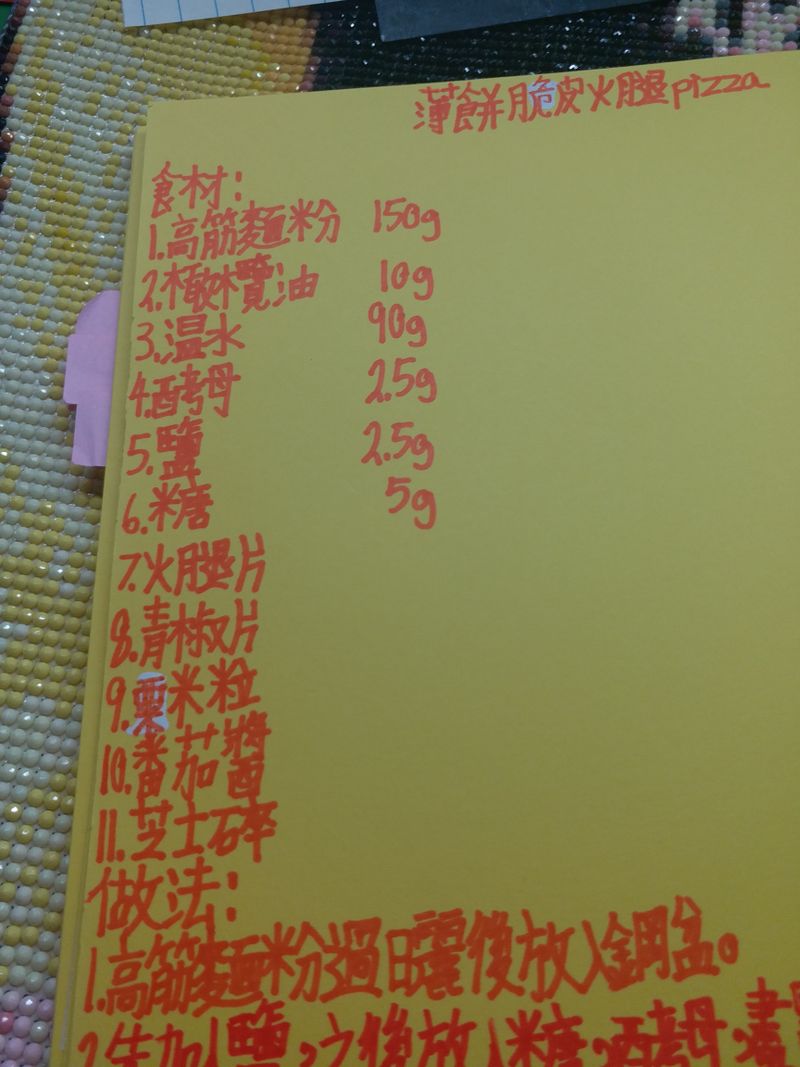 薄餅脆皮火腿pizza
食材:
1.高筋麵粉 150g
2.橄欖油 10g
3.温水 90g
4.酵母 2.5g
5.鹽 2.5g
6.糖 5g
7.火腿片
8.青椒片
9.粟米粒
10.番茄醬
11.芝士碎
做法:
1.高筋麵粉過曬後放入鋼盆。
2.先加入鹽,之後放入糖,酵母,盡